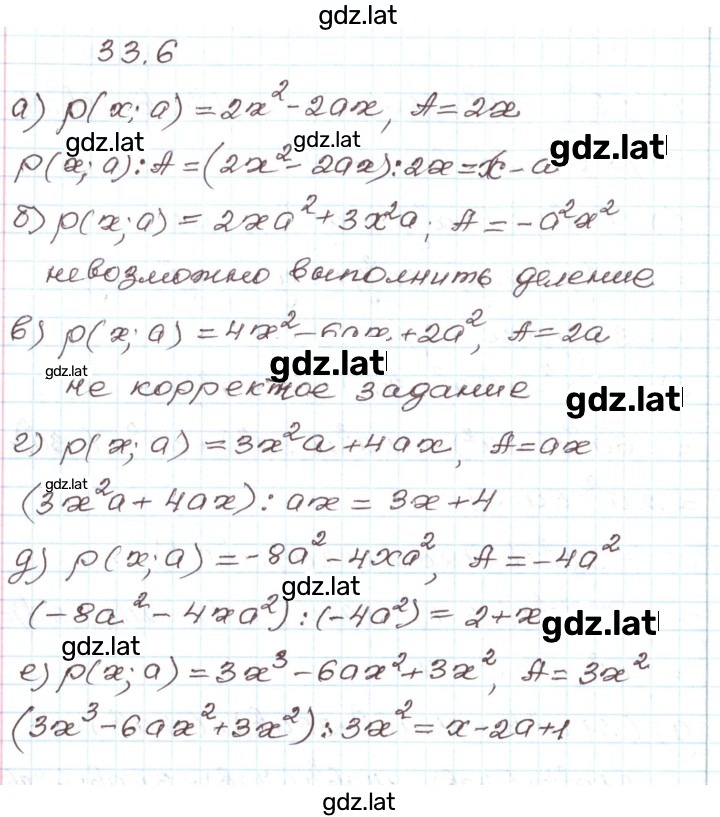 gdz.lat
33.6
а) p(x; a) = 2x² - 2ax, A = 2x
gdz.lat gdz.lat gdz.lat
p(x; a) : A = (2x² - 2ax) : 2x = x - a
б) p(x; a) = 2xa² + 3x²a; A = -a²x²
невозможно выполнить деление
в) p(x; a) = 4x² - 6ax + 2a², A = 2a
gdz.lat gdz.lat
не корректное задание gdz.lat
г) p(x; a) = 3x²a + 4ax, A = ax
gdz.lat
(3x²a + 4ax) : ax = 3x + 4
д) p(x; a) = -8a² - 4xa², A = -4a²
gdz.lat
(-8a² - 4xa²) : (-4a²) = 2 + x
gdz.lat gdz.lat
е) p(x; a) = 3x³ - 6ax² + 3x², A = 3x²
(3x³ - 6ax² + 3x²) : 3x² = x - 2a + 1
gdz.lat